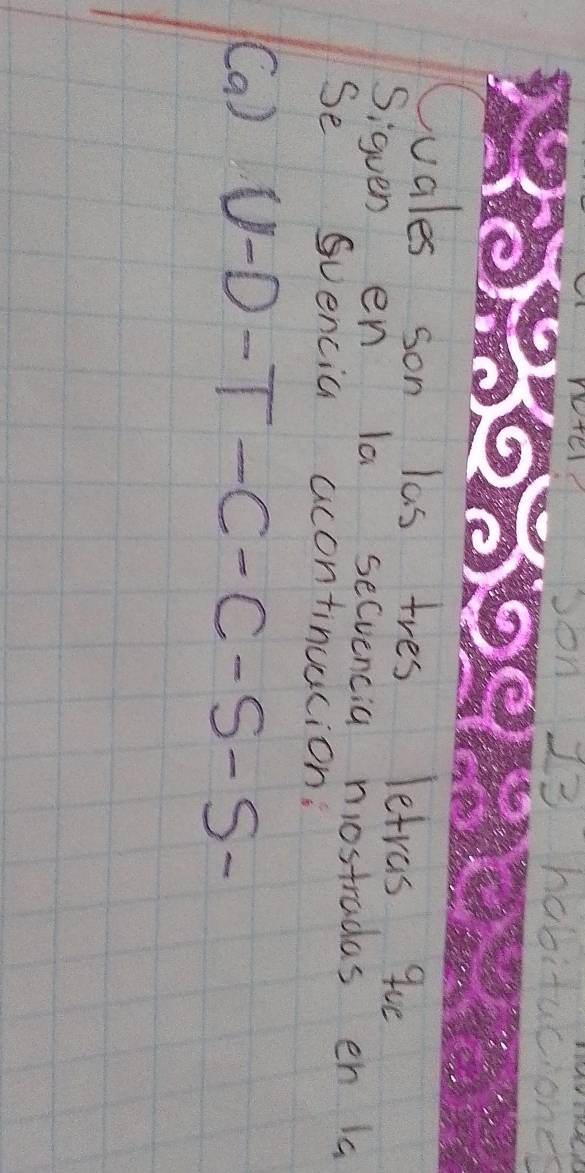 hotel?
son 23 habitaciones
Cuales son las tres letras que
Siguen en la secuencia mostradas en la
Se suencia acontinuacion:
(a) U-D-T-C-C-S-S-